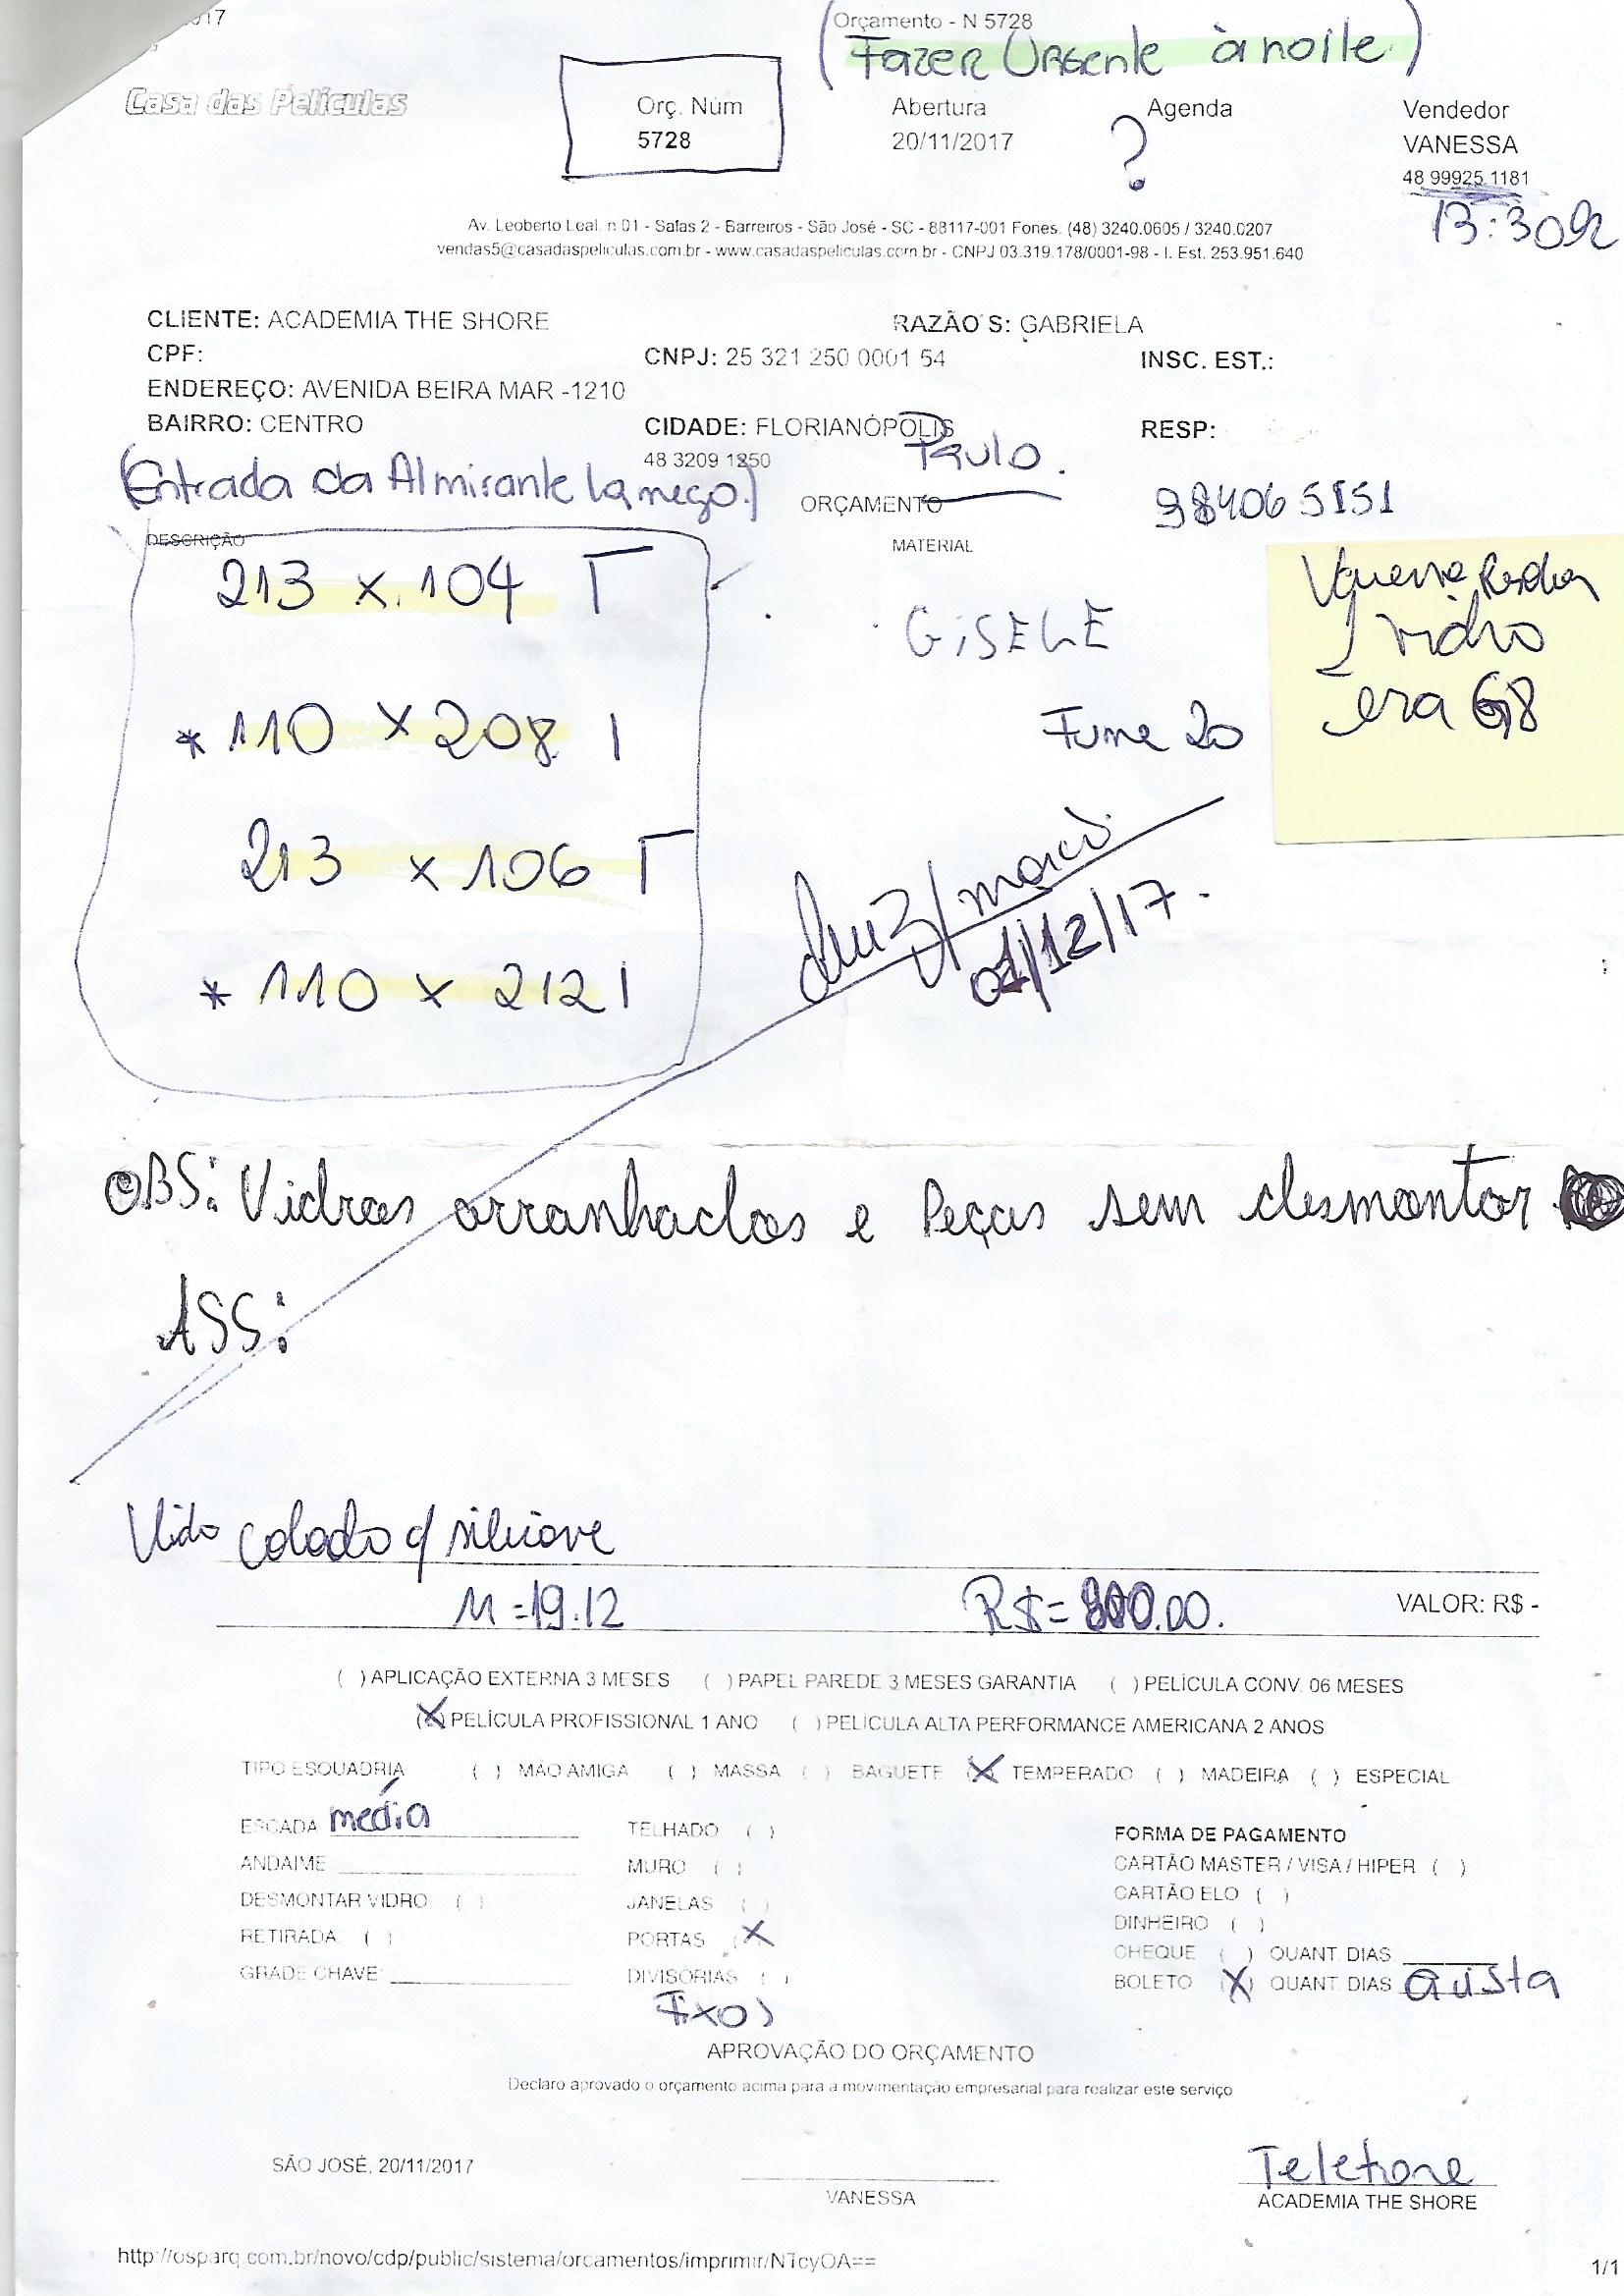 Orçamento - N 5728
(Fazer Urgente à noite)
Casa das Películas
Orç. Núm
5728
Abertura
20/11/2017
Agenda
?
Vendedor
VANESSA
48 99925 1181
13:30
Av. Leoberto Leal. n 01 - Salas 2 - Barreiros - São José - SC - 88117-001 Fones. (48) 3240.0605 / 3240.0207
vendas5@casadaspeliculas.com.br - www.casadaspeliculas.com.br - CNPJ 03.319.178/0001-98 - I. Est. 253.951.640
CLIENTE: ACADEMIA THE SHORE RAZÃO S: GABRIELA
CPF: CNPJ: 25 321 250 0001 54 INSC. EST.:
ENDEREÇO: AVENIDA BEIRA MAR -1210
BAIRRO: CENTRO CIDADE: FLORIANÓPOLIS RESP:
48 3209 1250 Paulo.
(Entrada da Almirante Lamego.)
ORÇAMENTO 984065151
DESCRIÇÃO MATERIAL
213 x 104
GISELE
Vanessa
1 vidro
era G8
* 110 x 208
Fume 20
213 x 106
Luiz/
01/12/17.
* 110 x 212
OBS: Vidros arranhados e Peças sem desmontar
ASS:
Vidro colado c/ silicone
M = 19.12 VALOR: R$ -
( ) APLICAÇÃO EXTERNA 3 MESES ( ) PAPEL PAREDE 3 MESES GARANTIA ( ) PELÍCULA CONV. 06 MESES
(X) PELÍCULA PROFISSIONAL 1 ANO ( ) PELÍCULA ALTA PERFORMANCE AMERICANA 2 ANOS
TIPO ESQUADRIA ( ) MÃO AMIGA ( ) MASSA ( ) BAGUETE (X) TEMPERADO ( ) MADEIRA ( ) ESPECIAL
ESCADA média
ANDAIME
DESMONTAR VIDRO ( )
RETIRADA ( )
GRADE CHAVE
TELHADO ( )
MURO ( )
JANELAS ( )
PORTAS (X)
DIVISÓRIAS ( )
Fixos
FORMA DE PAGAMENTO
CARTÃO MASTER / VISA / HIPER ( )
CARTÃO ELO ( )
DINHEIRO ( )
CHEQUE ( ) QUANT. DIAS
BOLETO (X) QUANT DIAS avista
APROVAÇÃO DO ORÇAMENTO
Declaro aprovado o orçamento acima para a movimentação empresarial para realizar este serviço
SÃO JOSÉ, 20/11/2017
VANESSA
Telefone
ACADEMIA THE SHORE
http://osparq.com.br/novo/cdp/public/sistema/orcamentos/imprimir/NTcyOA==
1/1